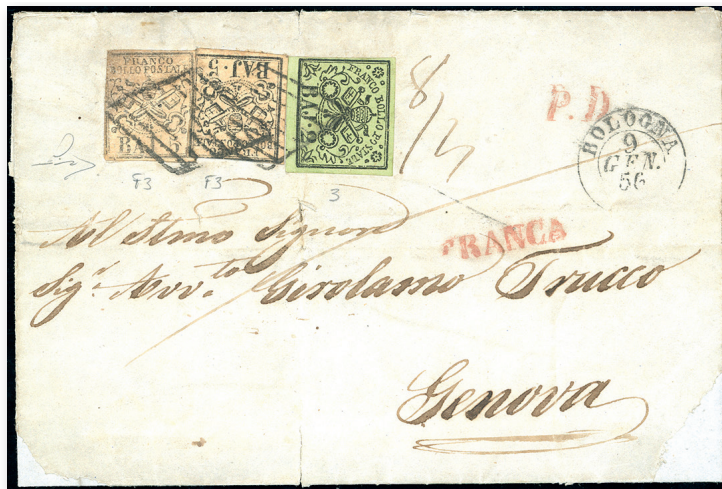 FRANCO
BOLLO POSTAL
BAJ 5
BAJ. 5
FRANCO BOLLO POSTALE
BAJ. 2
8/
P.D.
BOLOGNA
9
GEN.
56
F3 F3 3
All'Illmo Signore
FRANCA
Sigr. Avv.to Girolamo Trucco
Genova